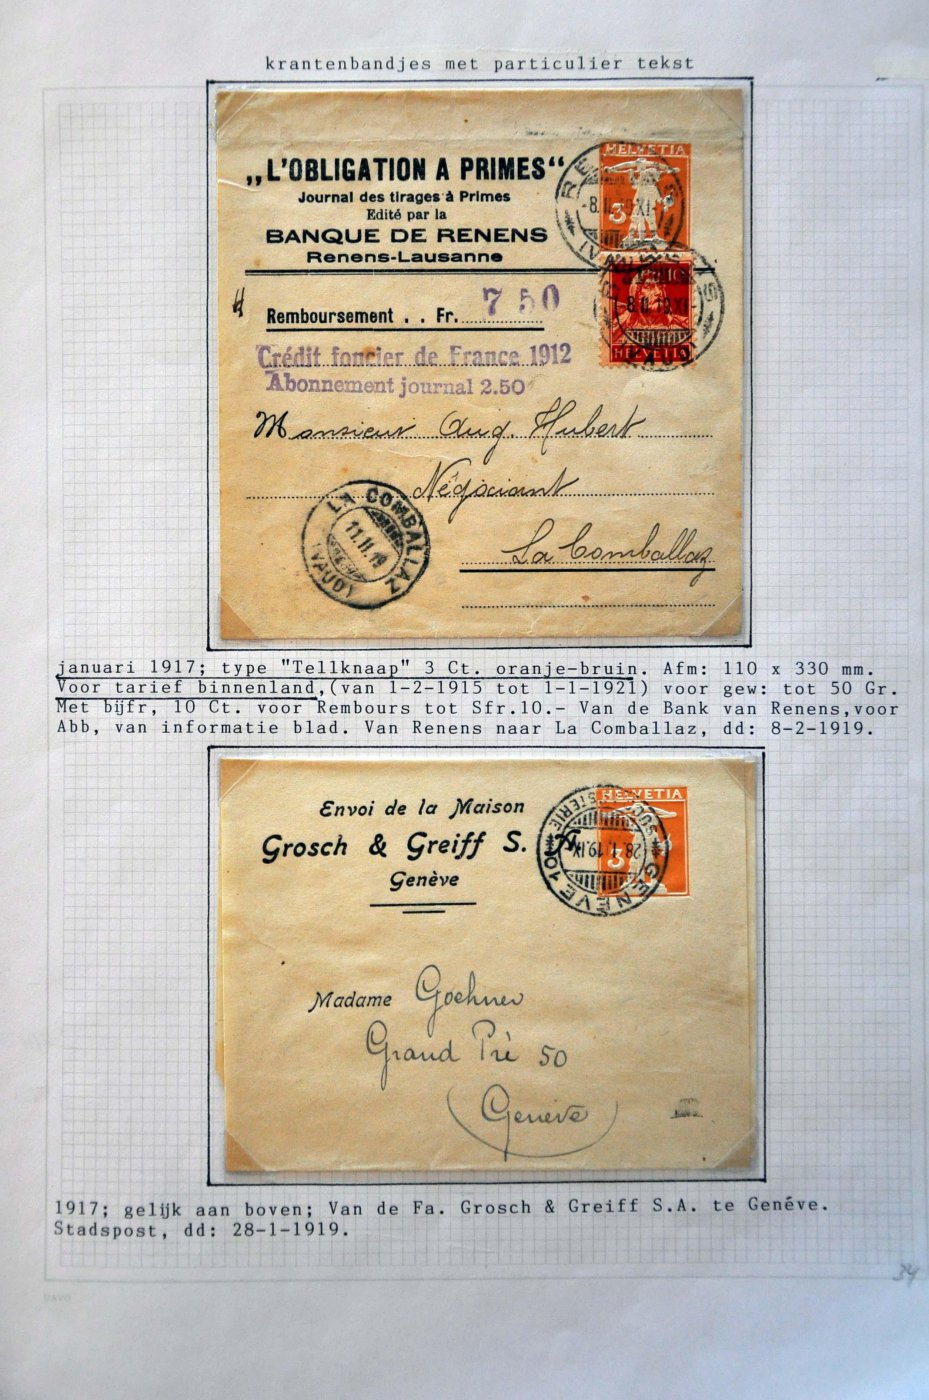 krantenbandjes met particulier tekst
„L'OBLIGATION A PRIMES“
Journal des tirages à Primes
Edité par la
BANQUE DE RENENS
Renens-Lausanne
HELVETIA
3
-8.II.19-XI-
10
-8.II.19.XI-
HELVETIA
Remboursement . . Fr. 7 50
Crédit foncier de France 1912
Abonnement journal 2.50
Monsieur Aug. Hubert
Négociant
La Comballaz
LA COMBALLAZ
11.II.19
(VAUD)
januari 1917; type "Tellknaap" 3 Ct. oranje-bruin. Afm: 110 x 330 mm.
Voor tarief binnenland,(van 1-2-1915 tot 1-1-1921) voor gew: tot 50 Gr.
Met bijfr, 10 Ct. voor Rembours tot Sfr.10.- Van de Bank van Renens,voor
Abb, van informatie blad. Van Renens naar La Comballaz, dd: 8-2-1919.
Envoi de la Maison
Grosch & Greiff S. A.
Genève
HELVETIA
3
GENÈVE 10
28.I.19.IX
Madame Goehner
Grand Pré 50
(Genève)
1917; gelijk aan boven; Van de Fa. Grosch & Greiff S.A. te Genéve.
Stadspost, dd: 28-1-1919.
34
DAVO